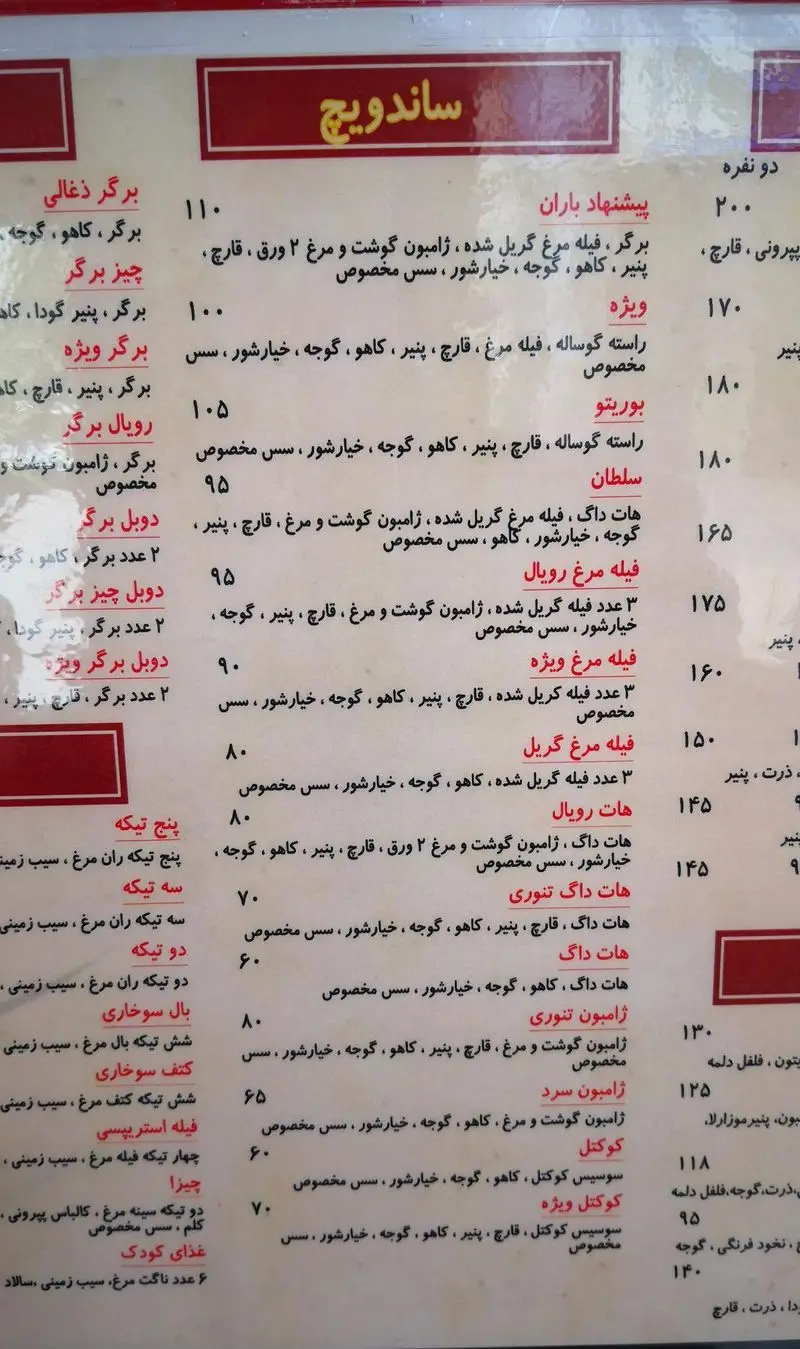 دو نفره
۲۰۰
پپرونی ، قارچ ،
۱۷۰
پنیر
۱۸۰
۱۸۰
۱۶۵
۱۷۵
، پنیر
۱۶۰
۱۵۰
، ذرت ، پنیر
۱۴۵
پنیر
۱۴۵
۱۳۰
، فلفل دلمه
۱۲۵
پنیرموزارلا،
۱۱۸
،ذرت،گوجه،فلفل دلمه
۹۵
، نخود فرنگی ، گوجه
۱۴۰
، ذرت ، قارچ
ساندویچ
پیشنهاد باران ۱۱۰
برگر ، فیله مرغ گریل شده ، ژامبون گوشت و مرغ ۲ ورق ، قارچ ،
پنیر ، کاهو ، گوجه ، خیارشور ، سس مخصوص
ویژه ۱۰۰
راسته گوساله ، فیله مرغ ، قارچ ، پنیر ، کاهو ، گوجه ، خیارشور ، سس
مخصوص
بوریتو ۱۰۵
راسته گوساله ، قارچ ، پنیر ، کاهو ، گوجه ، خیارشور ، سس مخصوص
سلطان ۹۵
هات داگ ، فیله مرغ گریل شده ، ژامبون گوشت و مرغ ، قارچ ، پنیر ،
گوجه ، خیارشور ، کاهو ، سس مخصوص
فیله مرغ رویال ۹۵
۳ عدد فیله گریل شده ، ژامبون گوشت و مرغ ، قارچ ، پنیر ، گوجه ،
خیارشور ، سس مخصوص
فیله مرغ ویژه ۹۰
۳ عدد فیله کریل شده ، قارچ ، پنیر ، کاهو ، گوجه ، خیارشور ، سس
مخصوص
فیله مرغ گریل ۸۰
۳ عدد فیله گریل شده ، کاهو ، گوجه ، خیارشور ، سس مخصوص
هات رویال ۸۰
هات داگ ، ژامبون گوشت و مرغ ۲ ورق ، قارچ ، پنیر ، کاهو ، گوجه ،
خیارشور ، سس مخصوص
هات داگ تنوری ۷۰
هات داگ ، قارچ ، پنیر ، کاهو ، گوجه ، خیارشور ، سس مخصوص
هات داگ ۶۰
هات داگ ، کاهو ، گوجه ، خیارشور ، سس مخصوص
ژامبون تنوری ۸۰
ژامبون گوشت و مرغ ، قارچ ، پنیر ، کاهو ، گوجه ، خیارشور ، سس
مخصوص
ژامبون سرد ۶۵
ژامبون گوشت و مرغ ، کاهو ، گوجه ، خیارشور ، سس مخصوص
کوکتل ۶۰
سوسیس کوکتل ، کاهو ، گوجه ، خیارشور ، سس مخصوص
کوکتل ویژه ۷۰
سوسیس کوکتل ، قارچ ، پنیر ، کاهو ، گوجه ، خیارشور ، سس
مخصوص
برگر ذغالی
برگر ، کاهو ، گوجه ،
چیز برگر
برگر ، پنیر گودا ،
برگر ویژه
برگر ، پنیر ، قارچ ،
رویال برگر
برگر ، ژامبون گوشت و
مخصوص
دوبل برگر
۲ عدد برگر ، کاهو ،
دوبل چیز برگر
۲ عدد برگر ، پنیر گودا ،
دوبل برگر ویژه
۲ عدد برگر ، قارچ ، پنیر ،
پنج تیکه
پنج تیکه ران مرغ ، سیب
سه تیکه
سه تیکه ران مرغ ، سیب زمینی
دو تیکه
دو تیکه ران مرغ ، سیب زمینی ،
بال سوخاری
شش تیکه بال مرغ ، سیب زمینی
کتف سوخاری
شش تیکه کتف مرغ ، سیب زمینی
فیله استریپسی
چهار تیکه فیله مرغ ، سیب زمینی ،
چیزا
دو تیکه سینه مرغ ، کالباس پپرونی ،
کلم ، سس مخصوص
غذای کودک
۶ عدد ناگت مرغ، سیب زمینی ،سالاد